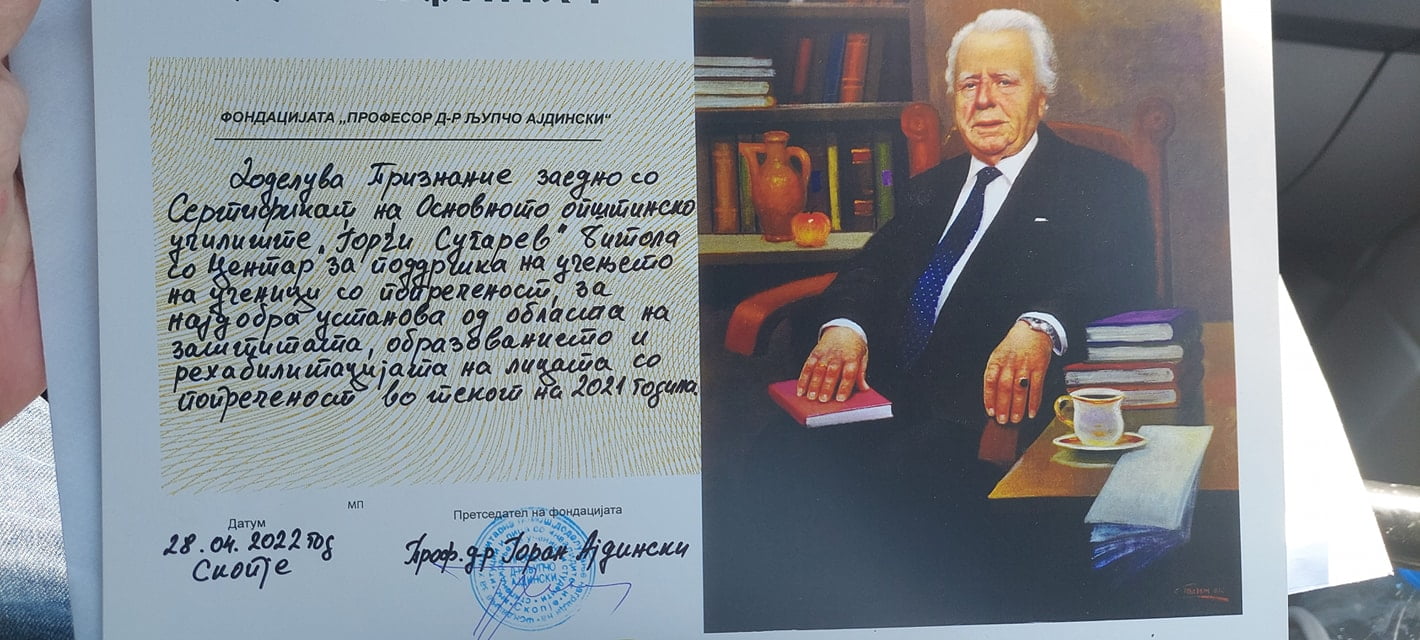 ФОНДАЦИЈАТА „ПРОФЕСОР Д-Р ЉУПЧО АЈДИНСКИ“
Доделува Признание заедно со
Сертификат на Основното општинско
училиште „Ѓорѓи Сугарев“ Битола
со Центар за поддршка на учењето
на ученици со попреченост, за
најдобра установа од областа на
заштитата, образованието и
рехабилитацијата на лицата со
попреченост во текот на 2021 година.
МП
Датум
Претседател на фондацијата
28.04.2022 год
Скопје
Проф. д-р Горан Ајдински
Д-Р ЉУПЧО
АЈДИНСКИ